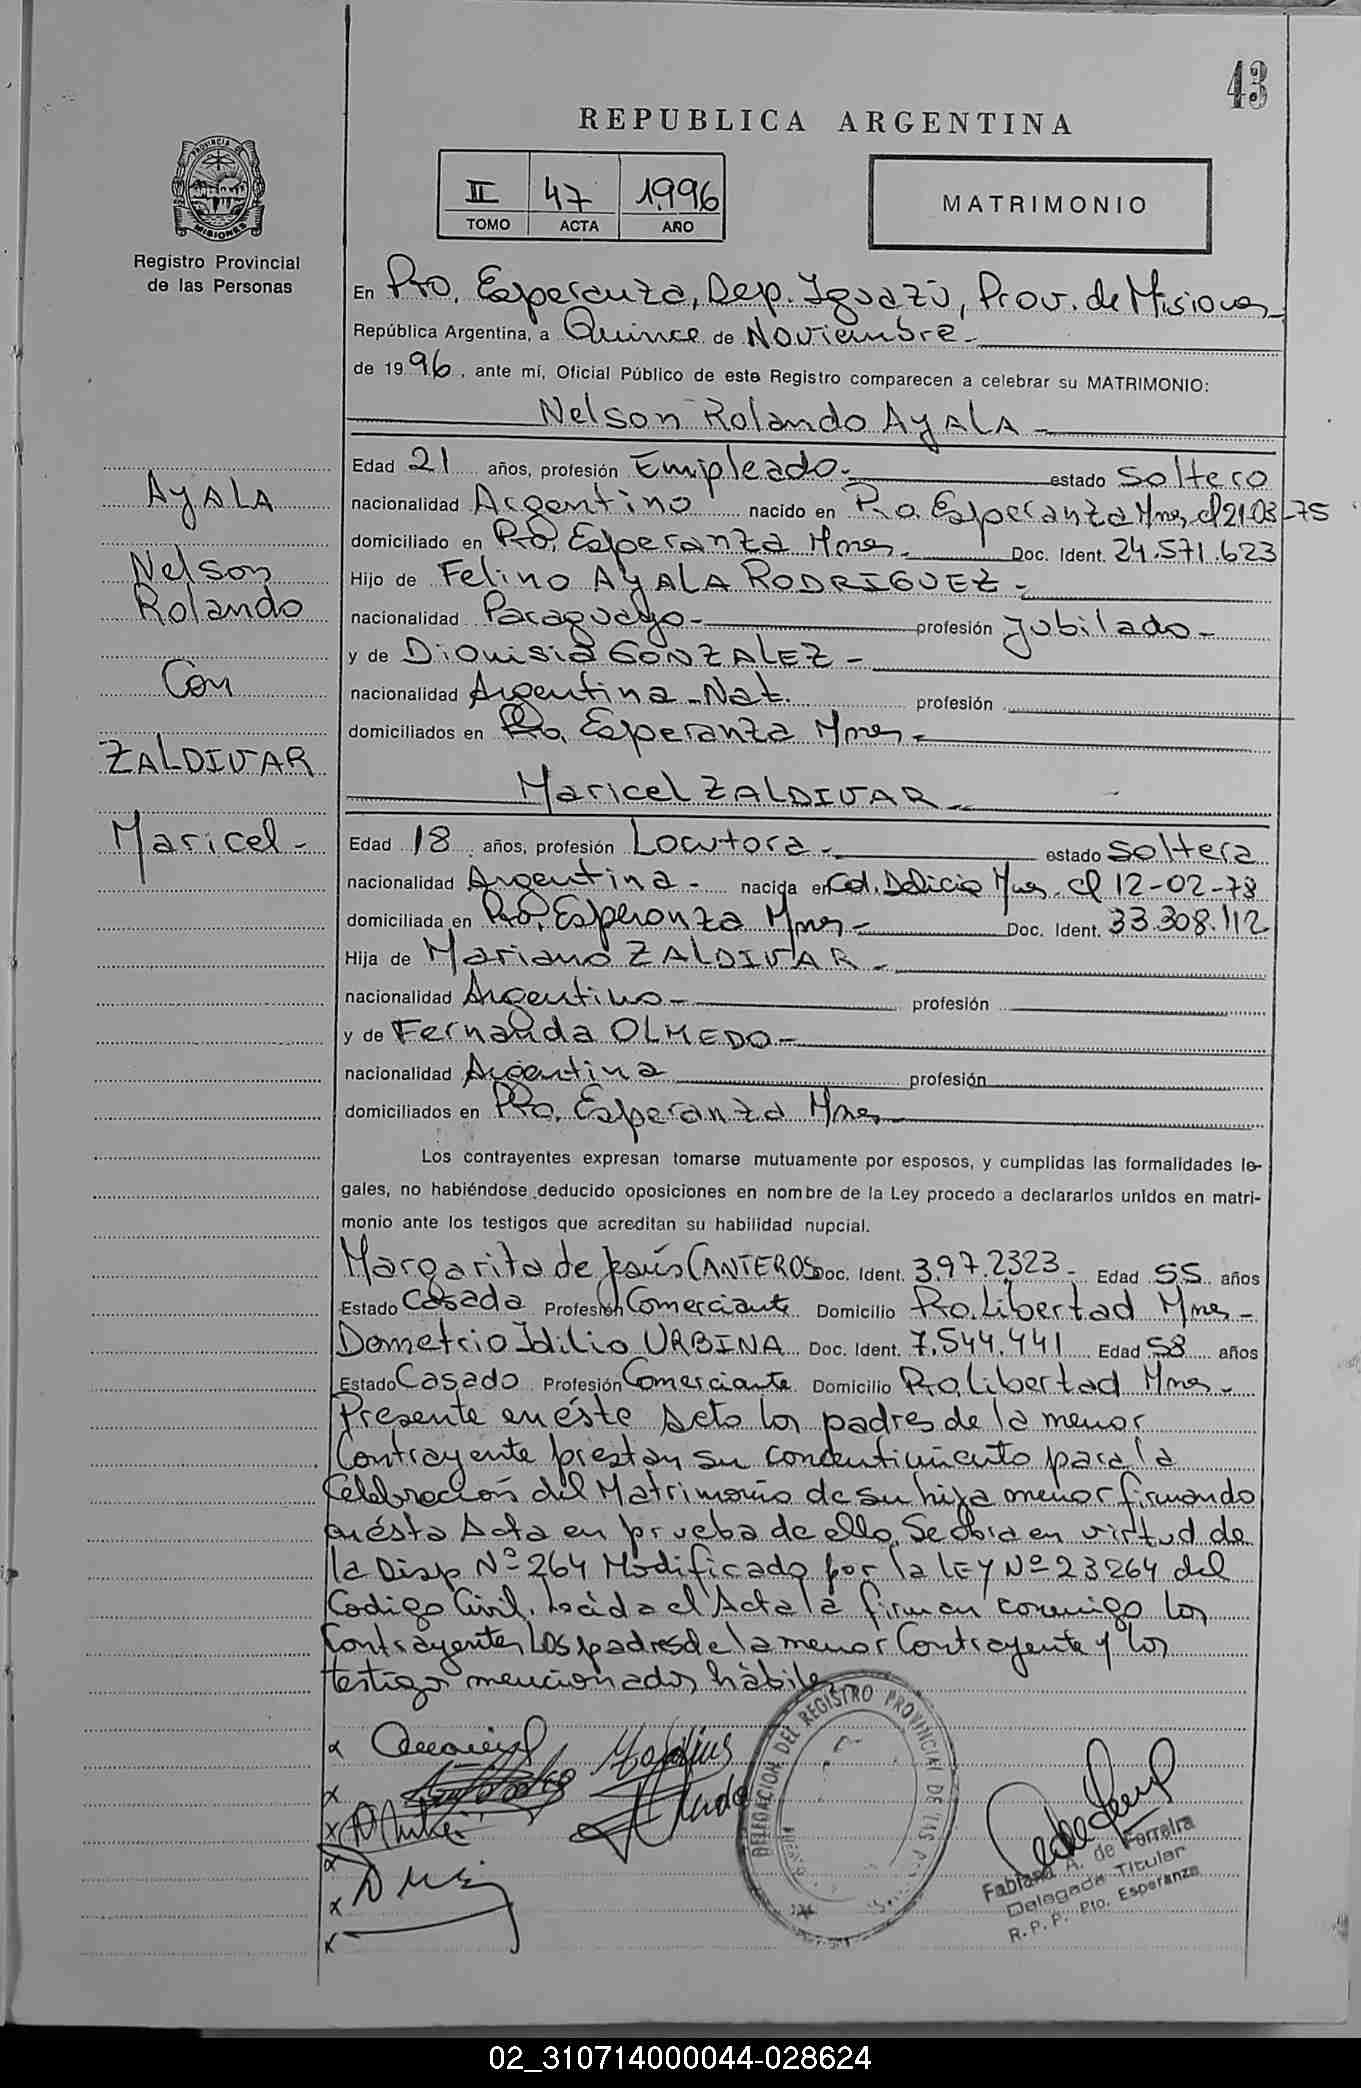 43
REPUBLICA ARGENTINA
II 47 1996
TOMO ACTA AÑO
MATRIMONIO
PROVINCIA DE
MISIONES
Registro Provincial
de las Personas
En Pto. Esperanza, Dep. Iguazú, Prov. de Misiones
República Argentina, a Quince de Noviembre
de 1996, ante mí, Oficial Público de este Registro comparecen a celebrar su MATRIMONIO:
Nelson Rolando AYALA
Edad 21 años, profesión Empleado. estado Soltero
nacionalidad Argentino nacido en Pto. Esperanza Mnes el 21-03-75
domiciliado en Pto. Esperanza Mnes Doc. Ident. 24.571.623
Hijo de Felino AYALA RODRIGUEZ
nacionalidad Paraguayo profesión Jubilado
y de Dionisia GONZALEZ
nacionalidad Argentina Nat. profesión
domiciliados en Pto. Esperanza Mnes
Maricel ZALDIVAR
Edad 18 años, profesión Locutora estado Soltera
nacionalidad Argentina nacida en Col. Delicia Mnes el 12-02-78
domiciliada en Pto. Esperanza Mnes Doc. Ident. 33.308.112
Hija de Mariano ZALDIVAR
nacionalidad Argentino profesión
y de Fernanda OLMEDO
nacionalidad Argentina profesión
domiciliados en Pto. Esperanza Mnes
AYALA
Nelson
Rolando
Con
ZALDIVAR
Maricel
Los contrayentes expresan tomarse mutuamente por esposos, y cumplidas las formalidades le-
gales, no habiéndose deducido oposiciones en nombre de la Ley procedo a declararlos unidos en matri-
monio ante los testigos que acreditan su habilidad nupcial.
Margarita de Jesús CANTEROS Doc. Ident. 3.97.2323 Edad 55 años
Estado Casada Profesión Comerciante Domicilio Pto. Libertad Mnes
Dometrio Idilio URBINA Doc. Ident. 7.544.441 Edad 58 años
Estado Casado Profesión Comerciante Domicilio Pto. Libertad Mnes
Presente en éste Acto los padres de la menor
Contrayente prestan su concentimiento para la
Celebración del Matrimonio de su hija menor firmando
en ésta Acta en prueba de ello. Se obra en virtud de
la Disp Nº 264 Modificado por la LEY Nº 23264 del
Codigo Civil. Leida el Acta la firman conmigo los
Contrayentes, Los padres de la menor Contrayente y los
testigos mencionados hábiles
DELEGACION DEL REGISTRO PROVINCIAL DE LAS
Fabiana A. de Ferreira
Delegada Titular
R. P. P. Pto. Esperanza
02_310714000044-028624